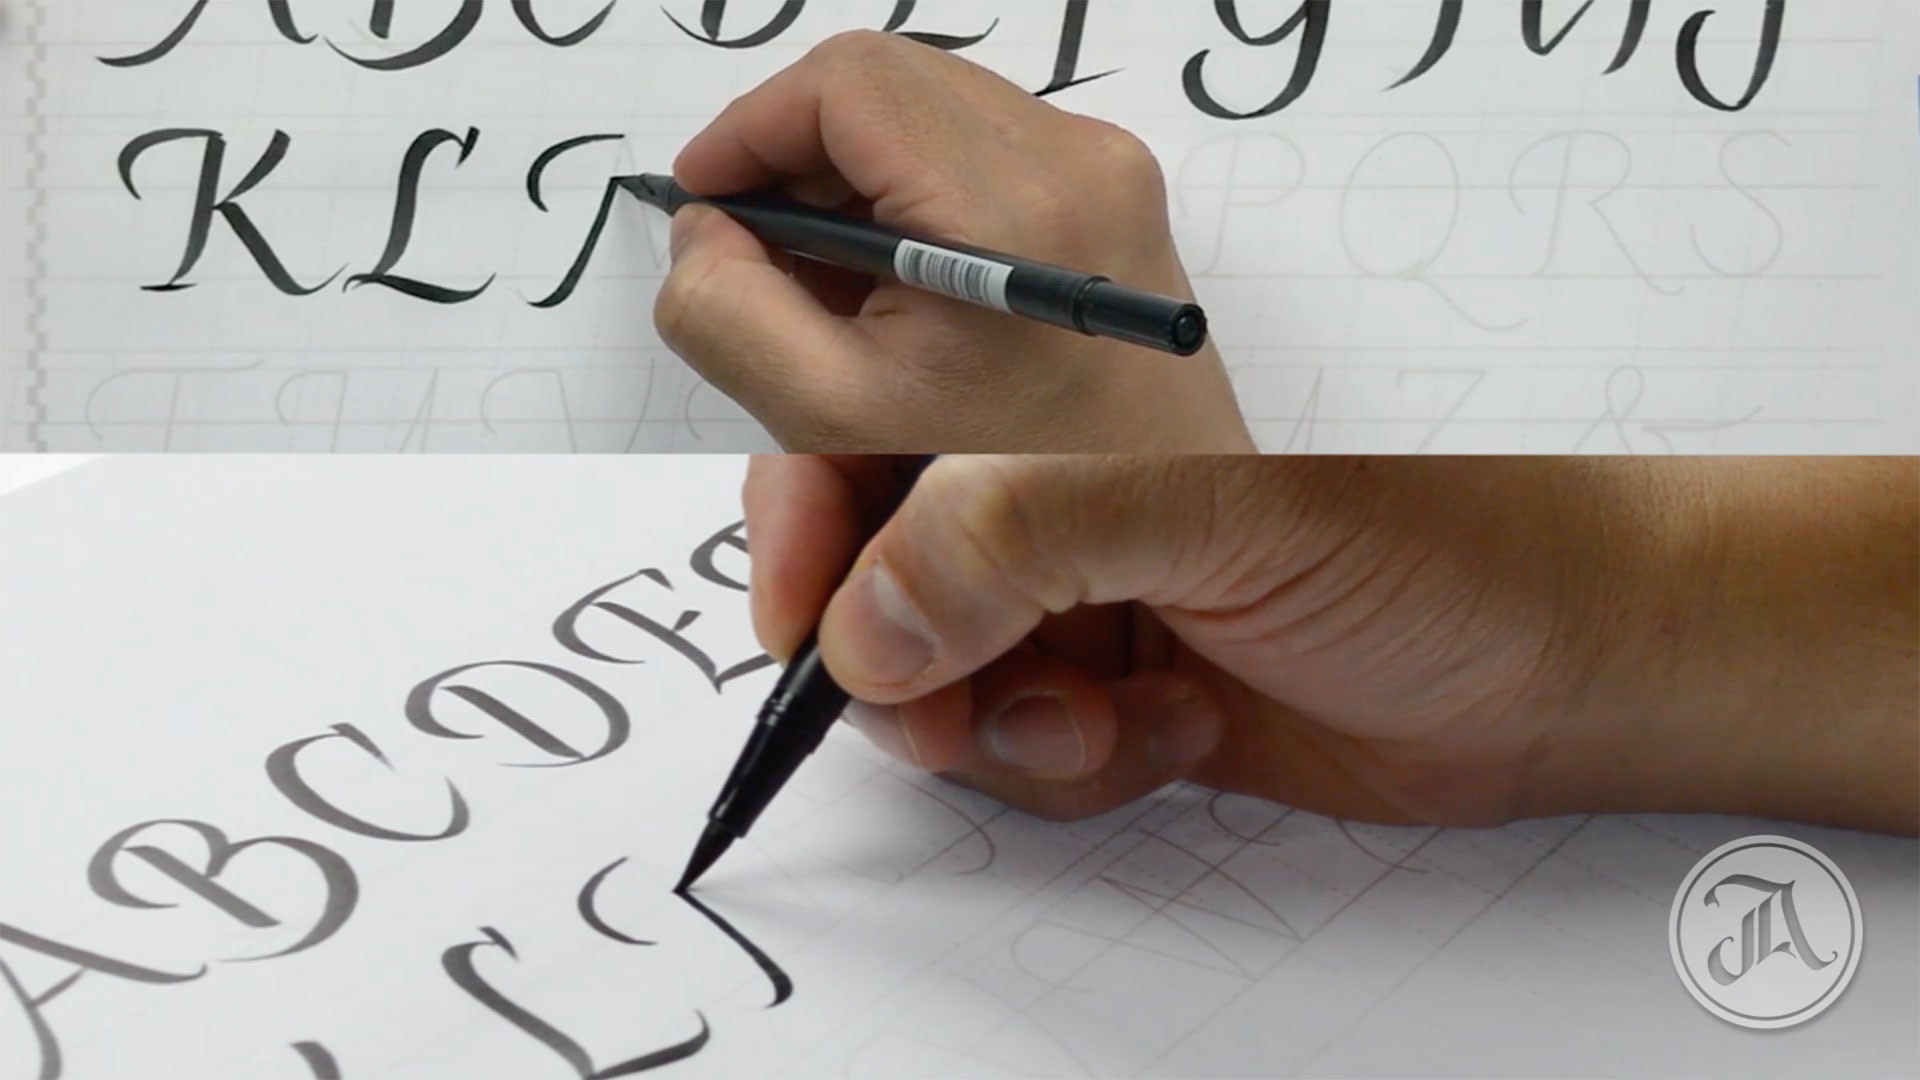 A B C D E F G H I J
K L
P Q R S
T U V
Z &
A B C D E
L
JA